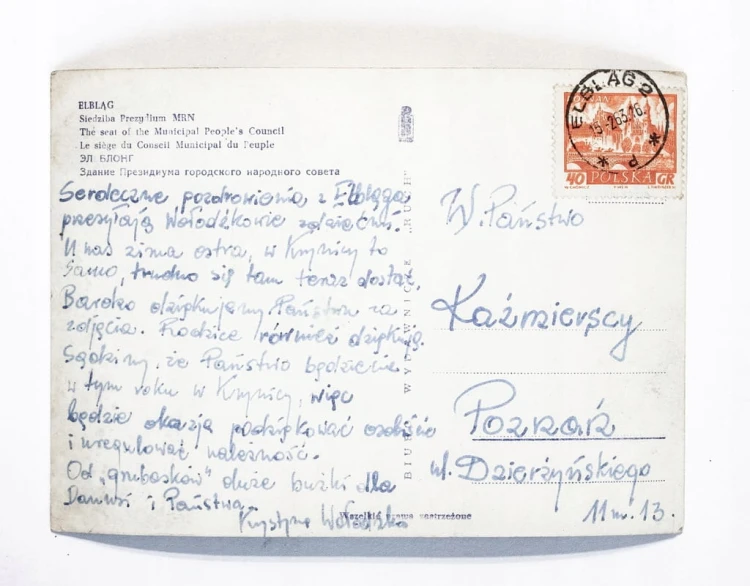 ELBLĄG
Siedziba Prezydium MRN
The seat of the Municipal People's Council
Le siège du Conseil Municipal du Peuple
ЭЛ БЛОНГ
Здание Президиума городского народного совета
Serdeczne pozdrowienia z Elbląga
przesyłają Wołódźkowie z dziećmi.
U nas zima ostra, w Krynicy to
samo, trudno się tam teraz dostać.
Bardzo dziękujemy Państwu za
zdjęcia. Rodzice również dziękują.
Sądzimy, że Państwo będziecie
w tym roku w Krynicy, więc
będzie okazja podziękować osobiście
i uregulować należność.
Od „grubasków" duże buźki dla
Danusi i Państwa.
Krystyna
Wszelkie prawa zastrzeżone
BIURO WYDAWNICZE "RUCH"
ELBLĄG 2
15.-2.63.-16.
40 POLSKA GR
W. Państwo
Kaźmierscy
Poznań
ul. Dzierżyńskiego
11 m. 13.